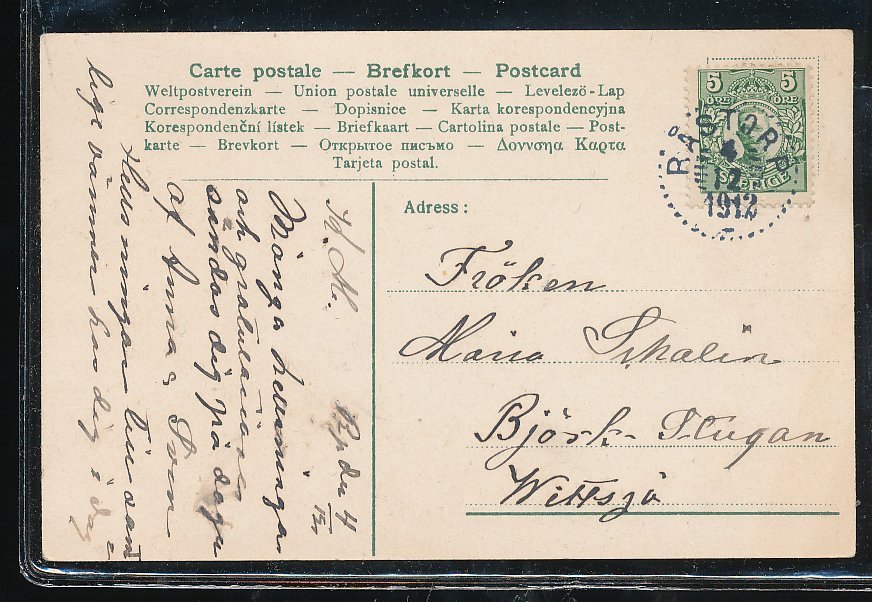 Carte postale — Brefkort — Postcard
Weltpostverein — Union postale universelle — Levelezö-Lap
Correspondenzkarte — Dopisnice — Karta korespondencyjna
Korespondenční lístek — Briefkaart — Cartolina postale — Post-
karte — Brevkort — Открытое письмо — Δουνσηα Καρτα
Tarjeta postal.
5 5
ÖRE ÖRE
SVERIGE
RÅGTORP
4
12
1912
Adress:
Fröken
Maria Schalin
Björk-Stugan
Wittsjö
Rp den 4/12
Många helsningar
och gratulationer
sändas dig på dagen
af Anna & Sven
Hels mingar
lige vänner hos dig i dag